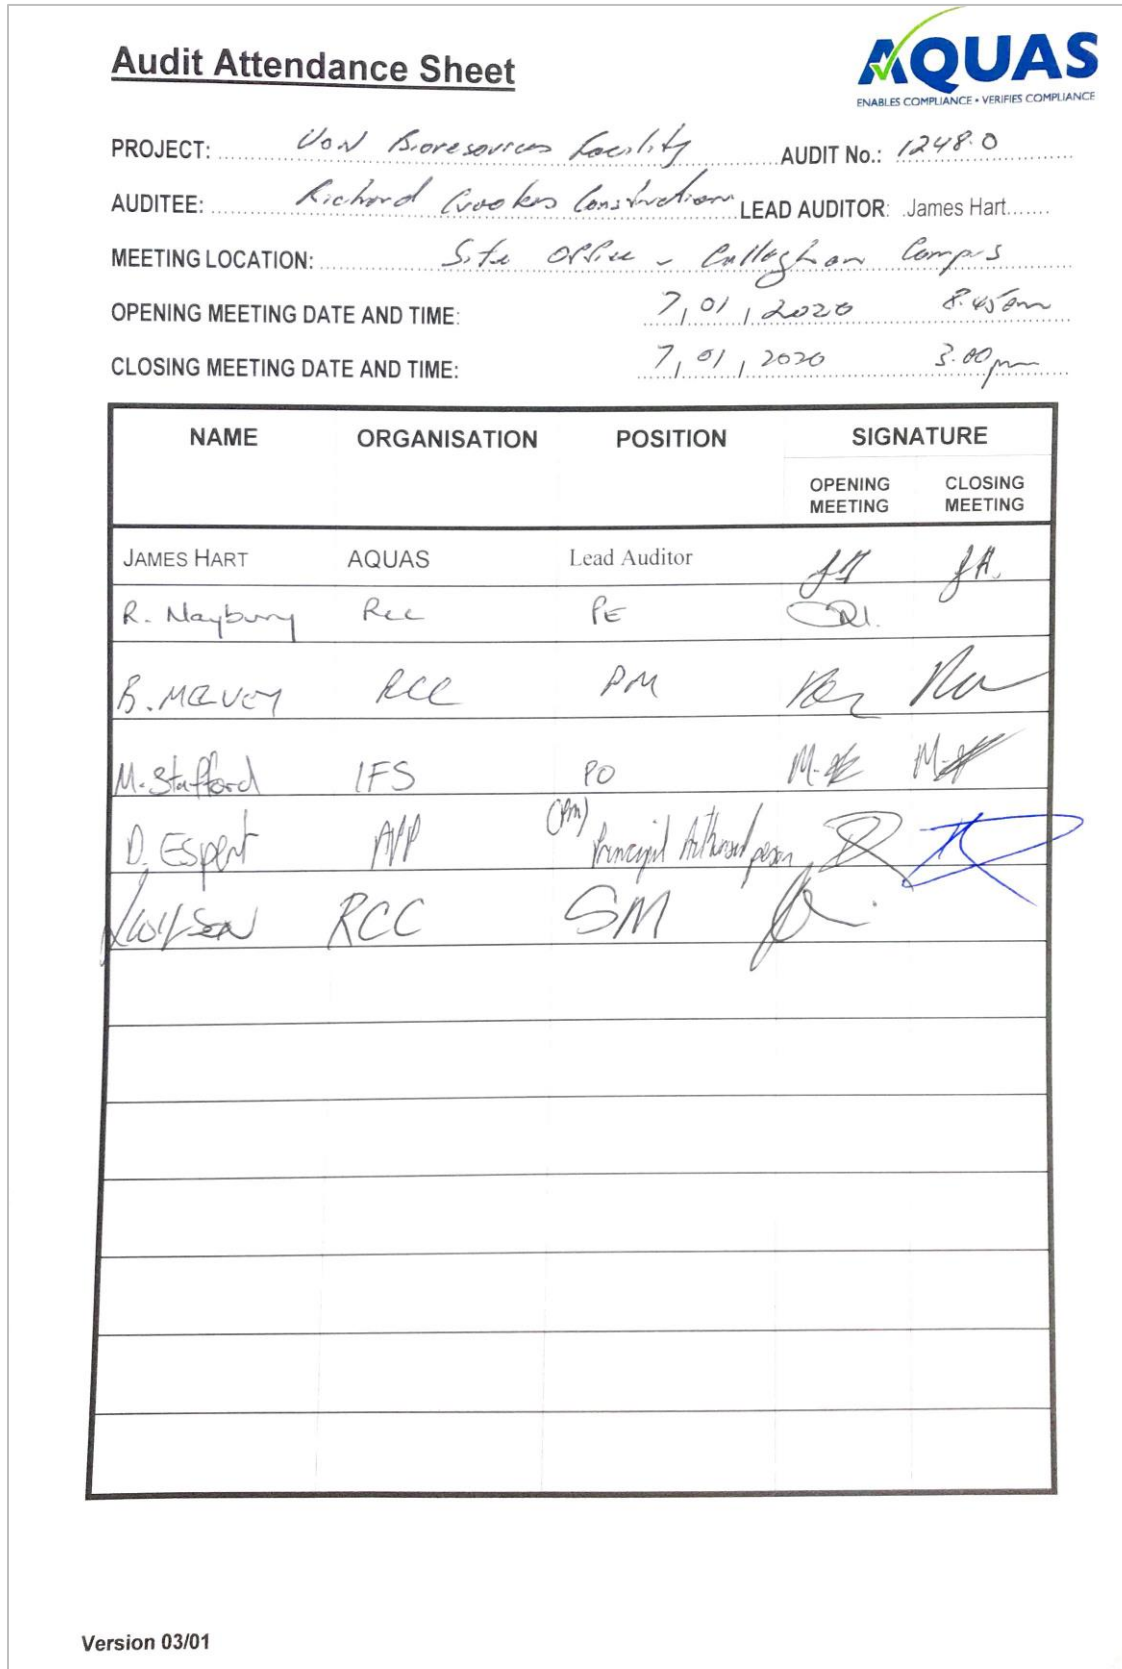 Audit Attendance Sheet
AQUAS
ENABLES COMPLIANCE • VERIFIES COMPLIANCE
PROJECT: UoN Bioresources Facility AUDIT No.: 1248.0
AUDITEE: Richard Crookes Constructions LEAD AUDITOR: James Hart
MEETING LOCATION: Site Office - Callaghan Campus
OPENING MEETING DATE AND TIME: 7/01/2020 8.45am
CLOSING MEETING DATE AND TIME: 7/01/2020 3.00pm
NAME ORGANISATION POSITION SIGNATURE
OPENING MEETING CLOSING MEETING
JAMES HART AQUAS Lead Auditor JH JH.
R. Maybury RCC PE
B. McEvey RCC PM
M. Stafford IFS PO
D. Espert APP (PM) Principal Authorised person
Wilson RCC SM
Version 03/01